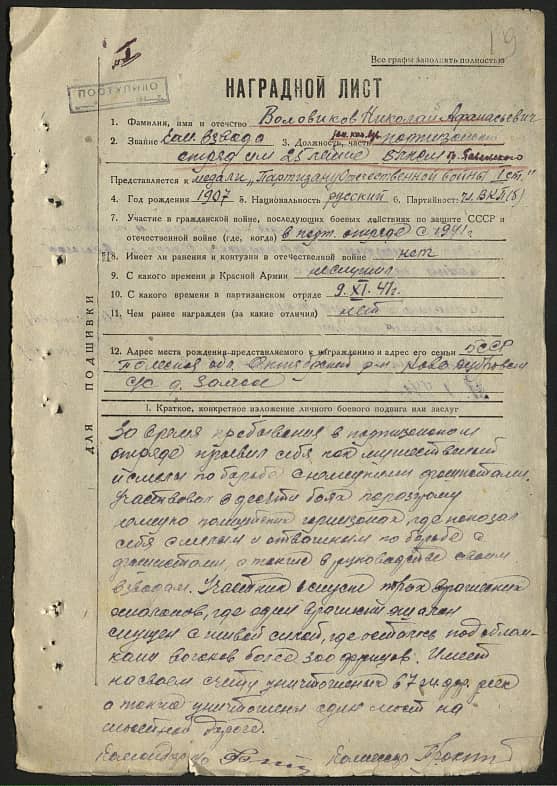 19
Все графы заполнять полностью
ПОСТУПИЛО
НАГРАДНОЙ ЛИСТ
1. Фамилия, имя и отчество Воловиков Николай Афанасьевич
2. Звание Ком. взвода 3. Должность, часть партизанский
отряд им 25 летие БССР
Представляется к медали "Партизану Отечественной войны I ст."
4. Год рождения 1907 5. Национальность русский 6. Партийность чл. ВКП(б)
7. Участие в гражданской войне, последующих боевых действиях по защите СССР и
отечественной войне (где, когда) в парт. отряде с 1941 г
8. Имеет ли ранения и контузии в отечественной войне нет
9. С какого времени в Красной Армии неслужил
10. С какого времени в партизанском отряде 9.XI.41г.
11. Чем ранее награжден (за какие отличия) нет
12. Адрес места рождения представляемого к награждению и адрес его семьи БССР
Полеская обл. Октябрьский р-н
с/с д.
ДЛЯ ПОДШИВКИ
I. Краткое, конкретное изложение личного боевого подвига или заслуг
За время пребывания в партизанском
отряде проявил себя как мужественный
и смелый по борьбе с немецкими фашистами.
Участвовал в десяти боях по разгрому
гарнизонов, где показал
себя смелым и отважным по борьбе с
фашистами, а также в руководстве своим
взводом. Участник спуске трех вражеских
эшалонов, где один вражский эшалон
спущен с живой силой, где осталось под облом-
ками вагонов более 300 фрицов. Имеет
на своем счету уничтоженых 67 рельс
а также уничтожены один мост на
дороге.
Командир Комиссар